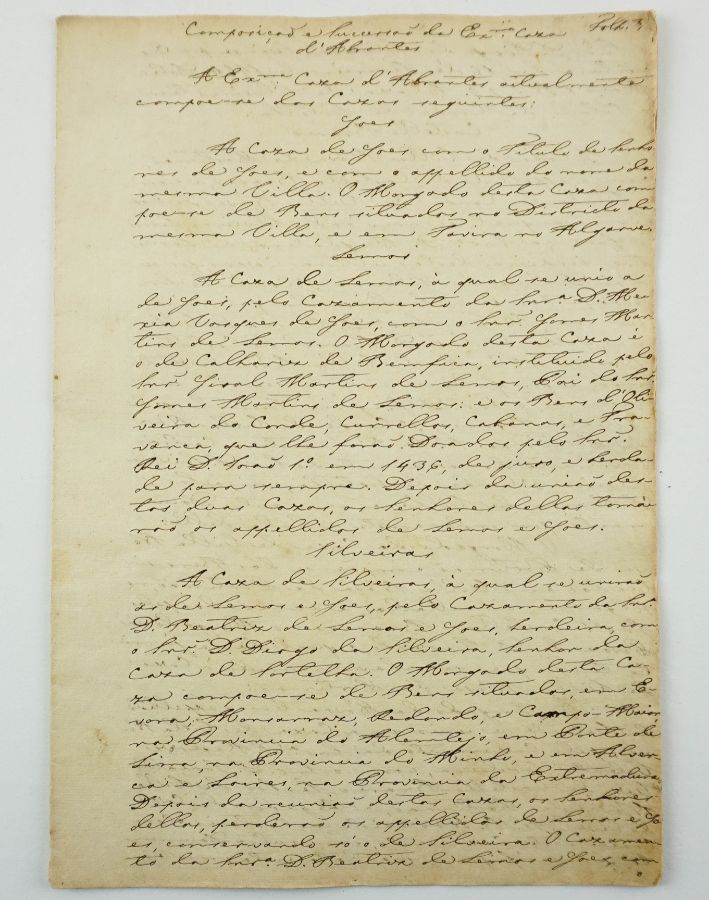 Composição e Successão da Ex.ma Caza
Folh. 3
d'Abrantes
A Ex.ma Caza d'Abrantes actualmente
compoe-se das Cazas seguintes:
Goes
A Caza de Goes com o Titulo de Senho
res de Goes, e com o appellido do nome da
mesma Villa. O Morgado desta Caza com
poe-se de Bens situados no Districto da
mesma Villa, e em Tavira no Algarve.
Lemos
A Caza de Lemos, à qual se unio a
de Goes, pelo Cazamento da Snr.a D. Me-
xia Vasques de Goes, com o Snr. Gomes Mar
tins de Lemos. O Morgado desta Caza é
o de Calhariz de Bemfica, instituido pelo
Snr. Giral Martins de Lemos, Pai do Snr.
Gomes Martins de Lemos: e os Bens d'Oli
veira do Conde, Currellos, Cabanas, e Tra-
vanca, que lhe forão Doados pelo Snr.
Rei D. João 1.o em 1436, de juro, e herda-
de para sempre. Depois da união des-
tas duas Cazas, os Senhores dellas toma-
rão os appellidos de Lemos e Goes.
Silveiras
A Caza de Silveiras, à qual se unirão
as de Lemos e Goes, pelo Cazamento da Snr.a
D. Beatriz de Lemos e Goes, herdeira, com
o Snr. D. Diogo da Silveira, Senhor da
Caza de Sortelha. O Morgado desta Ca-
za compoe-se de Bens situados, em E-
vora, Monsarraz, Redondo, e Campo-Maior
na Provincia do Alemtejo, em Ponte de
Lima, na Provincia do Minho, e em Alver-
ca e Loires, na Provincia da Extremadura.
Depois da reunião destas Cazas, os Senhores
dellas, perderão os appellidos de Lemos e Go
es, conservando só o de Silveira. O Cazamen-
to da Snr.a D. Beatriz de Lemos e Goes, com